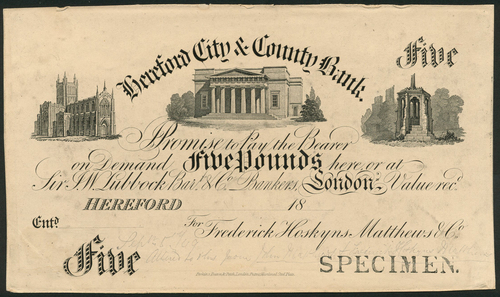 Hereford City & County Bank.
Five
I Promise to Pay the Bearer
on Demand Five Pounds here, or at
Sir J.W. Lubbock Bart. & Co. Bankers, London. Value recd.
HEREFORD 18
Entd.
For Frederick Hoskyns. Matthews & Co.
Five
SPECIMEN.